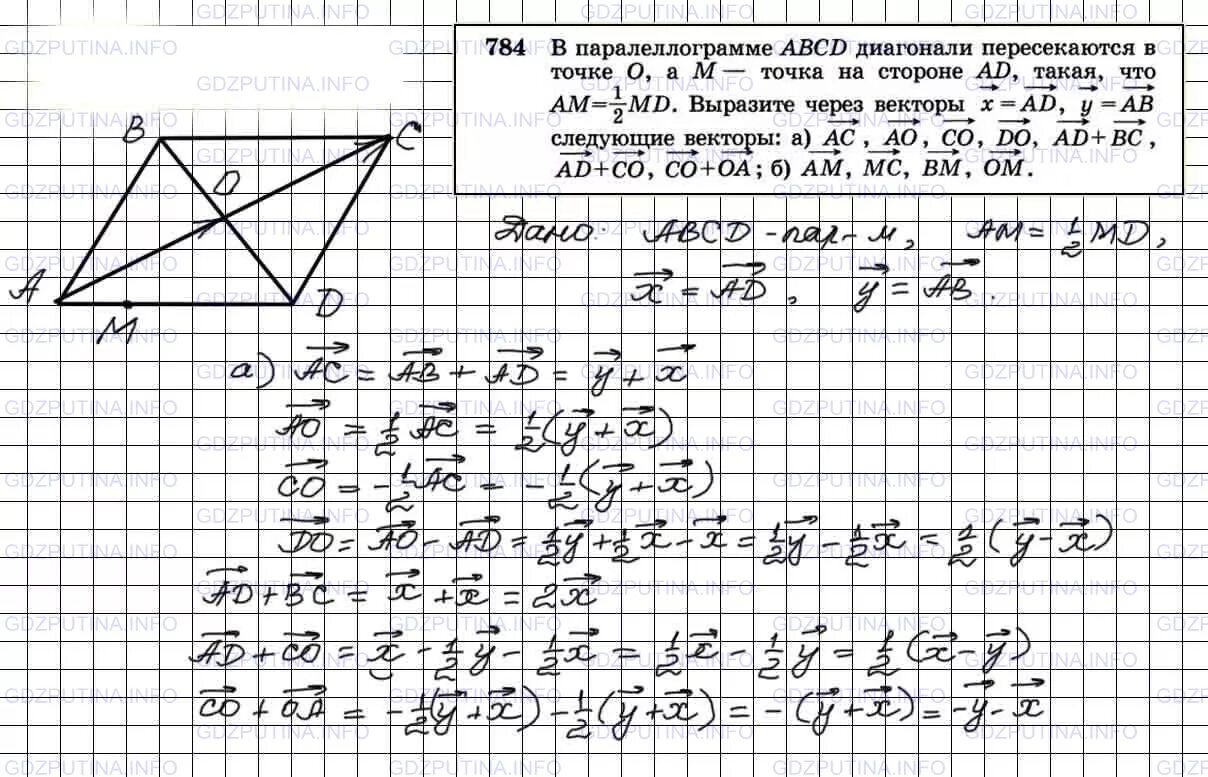 784 В паралеллограмме ABCD диагонали пересекаются в
точке O, а M — точка на стороне AD, такая, что
AM=1/2MD. Выразите через векторы x⃗ = AD⃗, y⃗ = AB⃗
следующие векторы: а) AC⃗, AO⃗, CO⃗, DO⃗, AD⃗+BC⃗,
AD⃗+CO⃗, CO⃗+OA⃗; б) AM⃗, MC⃗, BM⃗, OM⃗.
B
C
O
A
M
D
Дано: ABCD - пар-м, AM = 1/2 MD,
x⃗ = AD⃗, y⃗ = AB⃗.
а) AC⃗ = AB⃗ + AD⃗ = y⃗ + x⃗
AO⃗ = 1/2 AC⃗ = 1/2(y⃗ + x⃗)
CO⃗ = -1/2 AC⃗ = -1/2(y⃗ + x⃗)
DO⃗ = AO⃗ - AD⃗ = 1/2y⃗ + 1/2x⃗ - x⃗ = 1/2y⃗ - 1/2x⃗ = 1/2(y⃗ - x⃗)
AD⃗ + BC⃗ = x⃗ + x⃗ = 2x⃗
AD⃗ + CO⃗ = x⃗ - 1/2y⃗ - 1/2x⃗ = 1/2x⃗ - 1/2y⃗ = 1/2(x⃗ - y⃗)
CO⃗ + OA⃗ = -1/2(y⃗ + x⃗) - 1/2(y⃗ + x⃗) = -(y⃗ + x⃗) = -y⃗ - x⃗
GDZPUTINA.INFO